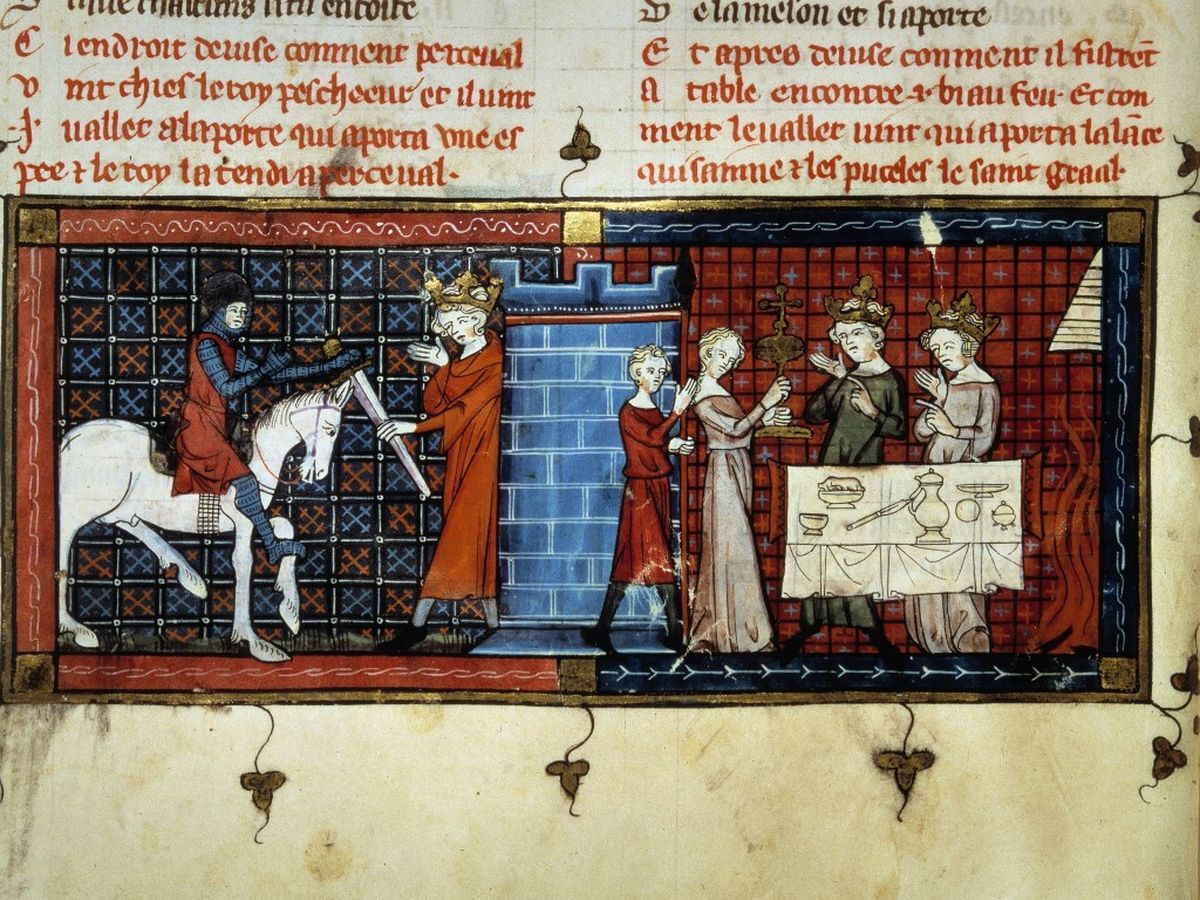 C iendroit deuise comment perceual
v int chies le roy pescheeur et il uint
.J. uallet a la porte qui aporta vne es
pee ⁊ le roy la tendi a perceual.
D e la meson et si aporte
E t apres deuise comment il fistrēt
A table encontre .i. biau feu. Et con
ment le uallet uint qui aporta la lāce
qui sainne ⁊ les puceles le saint Graal.